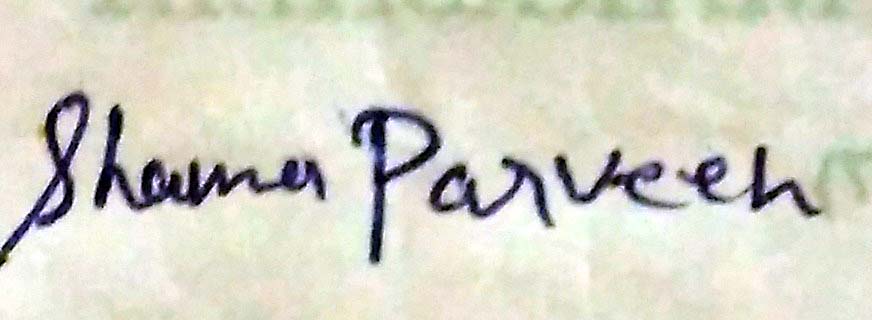 Shama Parveen